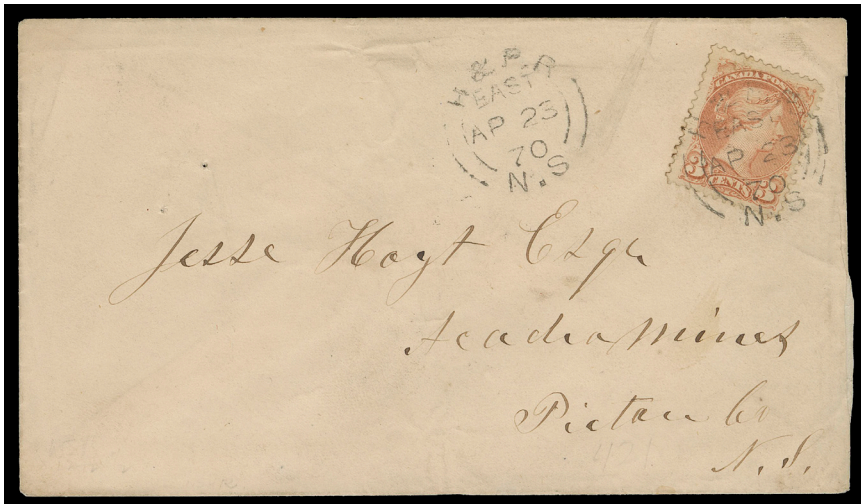 H & P. R
EAST
AP 23
70
N.S
CANADA POSTAGE
EAST
AP 23
70
N.S
3 CENTS 3
Jesse Hoyt Esqr
Acadia Mines
Pictou Co
N.S.